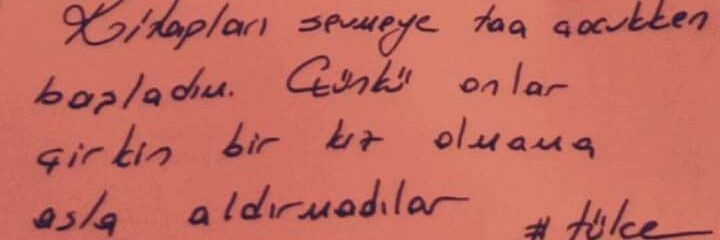 Kitapları sevmeye taa çocukken
başladım. Çünkü onlar
çirkin bir kız olmama
asla aldırmadılar
# tülce